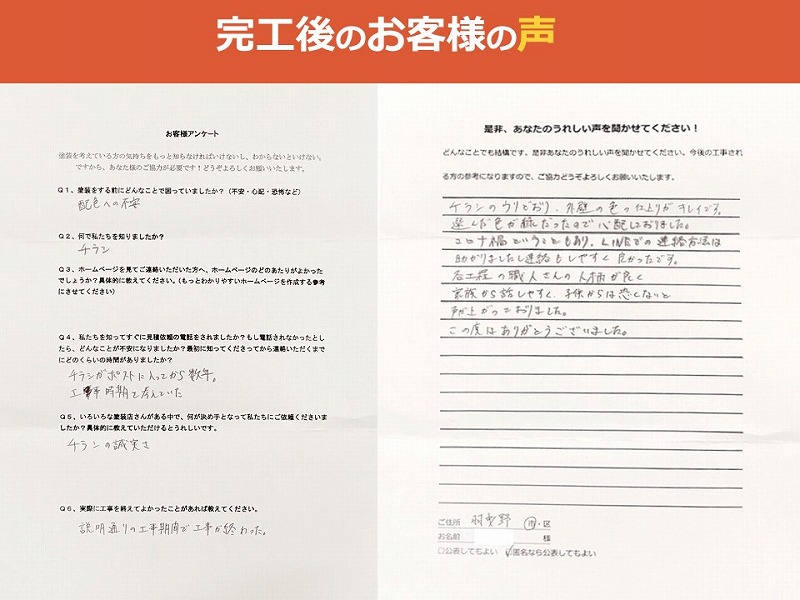 完工後のお客様の声
お客様アンケート
塗装を考えている方の気持ちをもっと知らなければいけないし、わからないといけない。
ですから、あなた様のご協力が必要です！どうぞよろしくお願いいたします。
Q１、塗装をする前にどんなことで困っていましたか？（不安・心配・恐怖など）
配色への不安
Q２、何で私たちを知りましたか？
チラシ
Q３、ホームページを見てご連絡いただいた方へ、ホームページのどのあたりがよかった
でしょうか？具体的に教えてください。（もっとわかりやすいホームページを作成する参考
にさせてください）
Q４、私たちを知ってすぐに見積依頼の電話をされましたか？もし電話されなかったとし
たら、どんなことが不安になりましたか？最初に知ってくださってから連絡いただくまで
にどのくらいの時間がありましたか？
チラシがポストに入ってから数年。
工事時期で考えていた
Q５、いろいろな塗装店さんがある中で、何が決め手となって私たちにご依頼くださいま
したか？具体的に教えていただけるとうれしいです。
チラシの誠実さ
Q６、実際に工事を終えてよかったことがあれば教えてください。
説明通りの工事期間で工事が終わった。
是非、あなたのうれしい声を聞かせてください！
どんなことでも結構です。是非あなたのうれしい声を聞かせてください。今後の工事され
る方の参考になりますので、ご協力どうぞよろしくお願いいたします。
チラシのウリどおり、外壁の色の仕上りがキレイです。
選んだ色が緑だったので心配しておりました。
コロナ禍ということもあり、LINEでの連絡方法は
助かりましたし連絡もしやすく良かったです。
各工程の職人さんの人柄が良く
家族から話しやすく、子供からは恐くないと
声が上がっておりました。
この度はありがとうございました。
ご住所 羽曳野 市・区
お名前 様
□公表してもよい ☑匿名なら公表してもよい